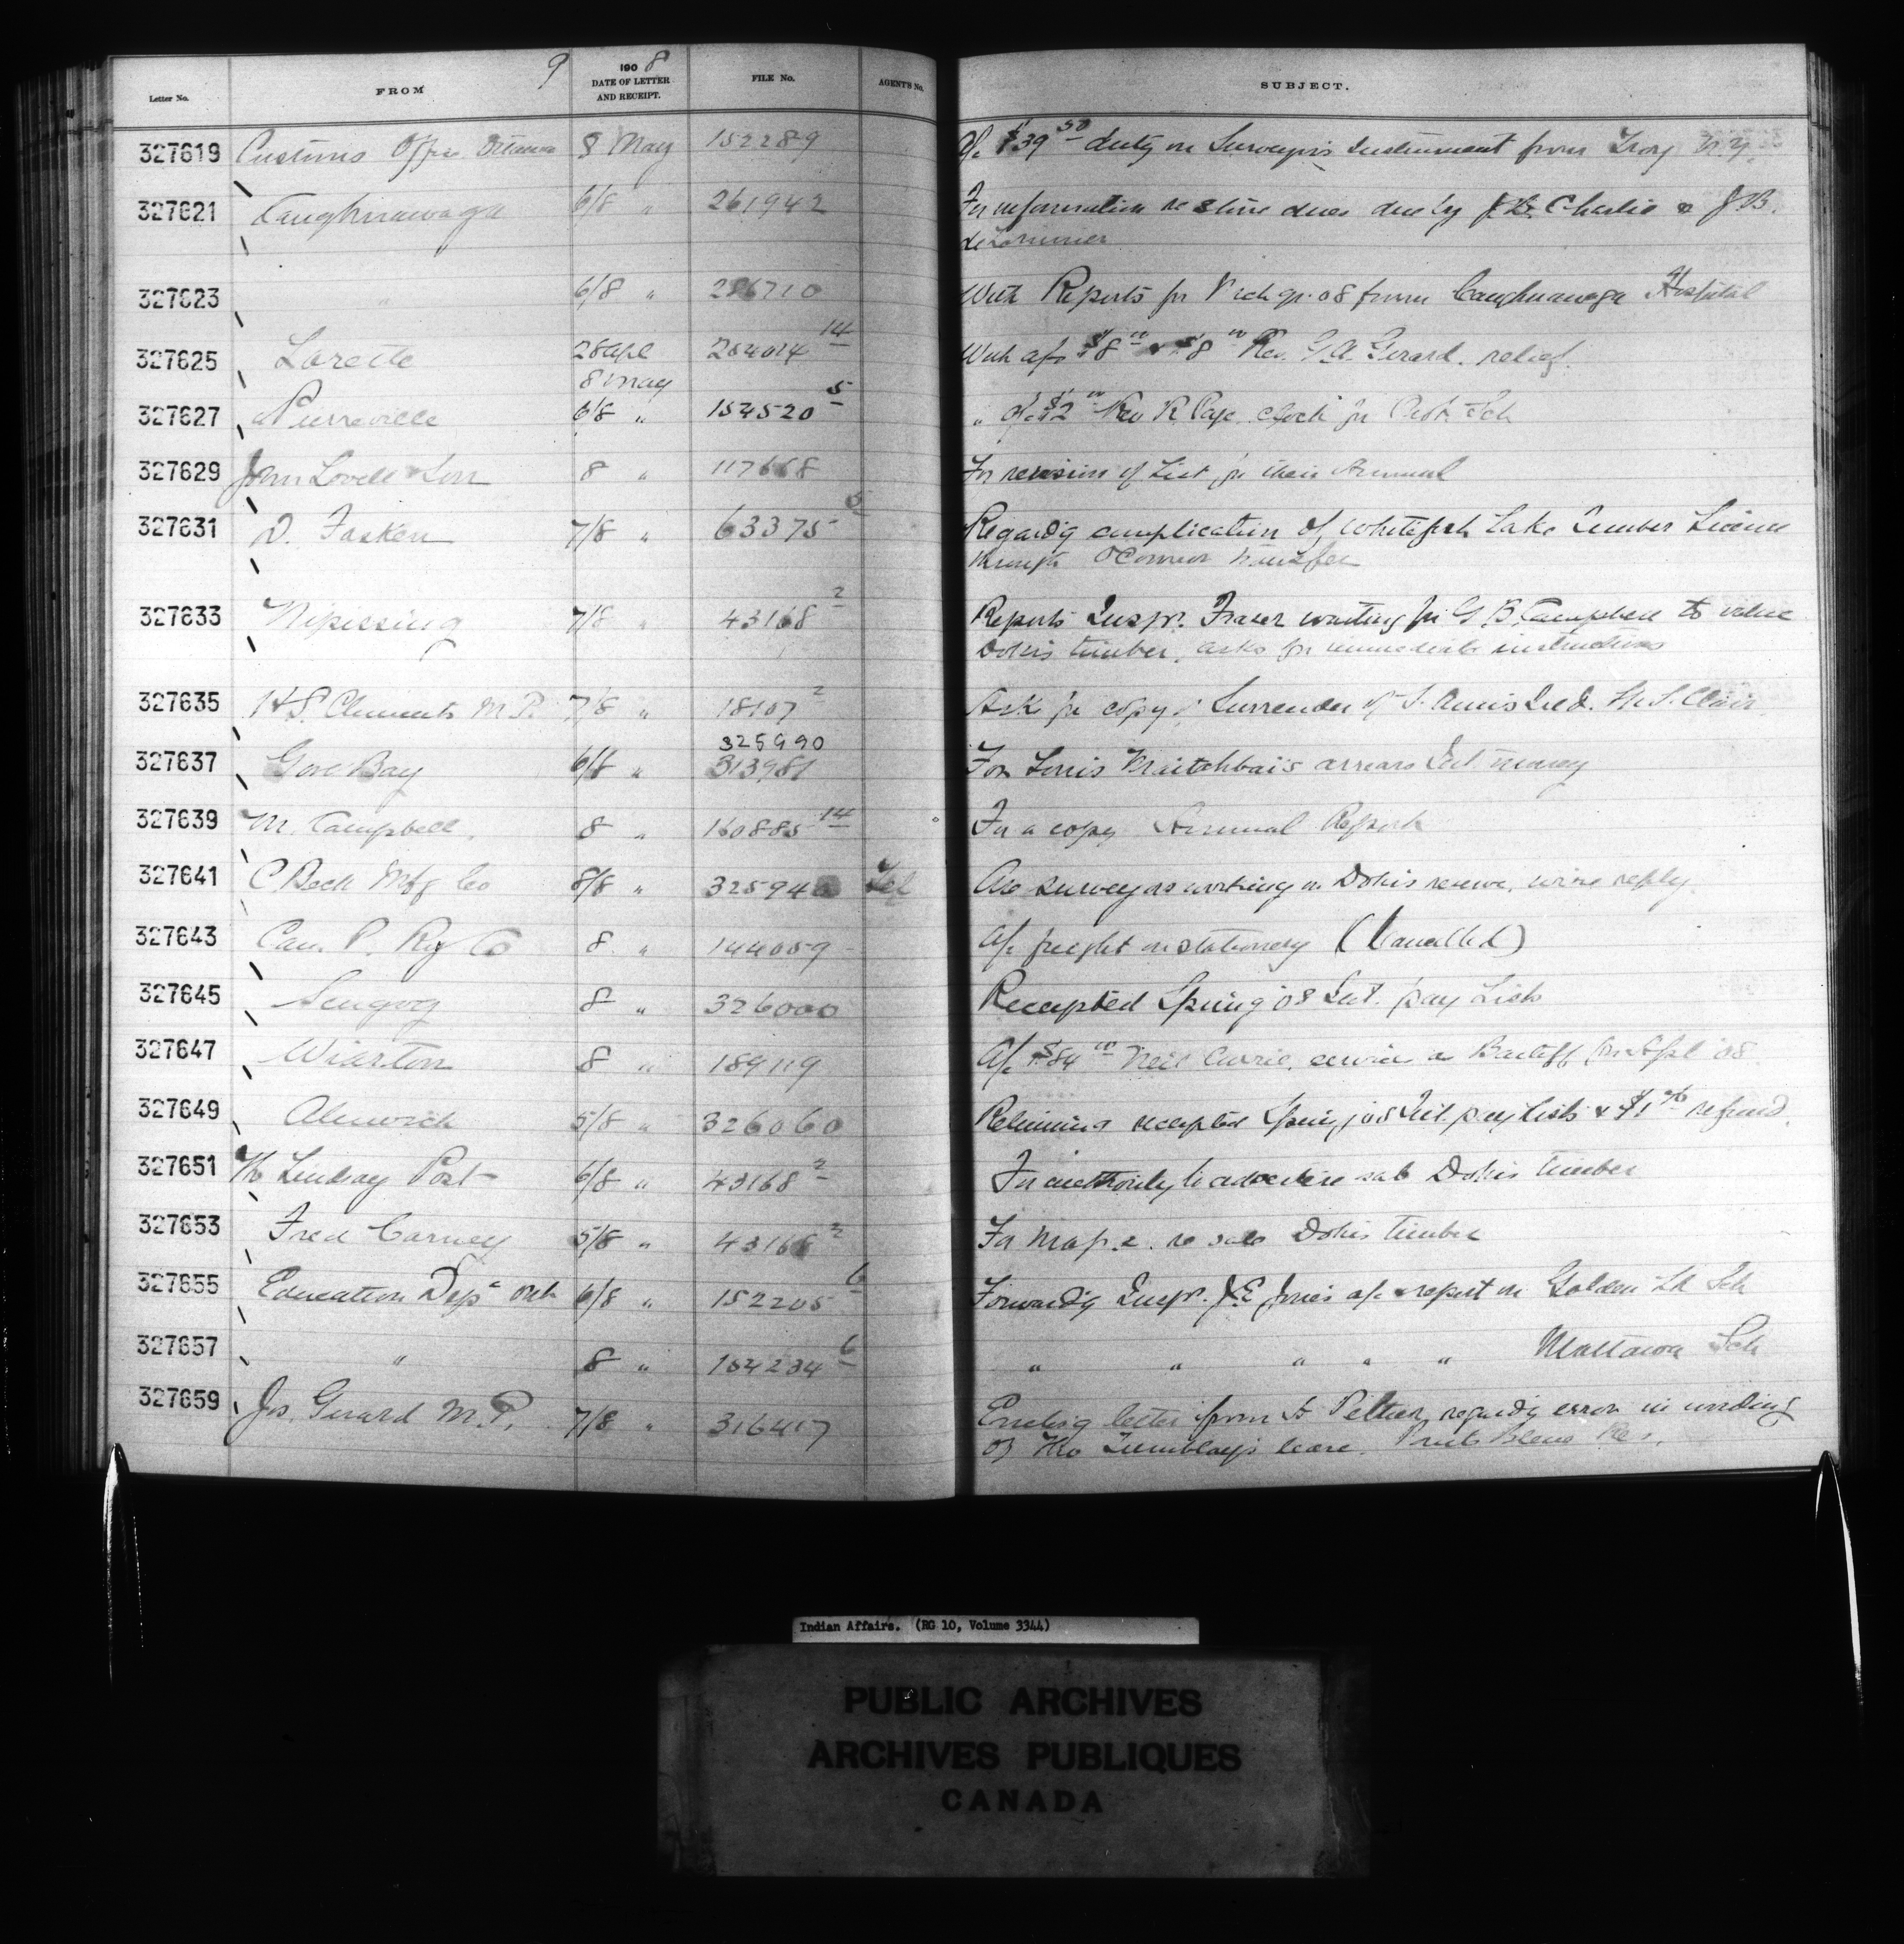 9
Letter No. FROM 190 8 DATE OF LETTER AND RECEIPT. FILE No. AGENT'S No. SUBJECT.
327619 Customs Office Ottawa 8 May 152289 A/c $39 50 duty on Surveyor's Instrument from Troy N.Y.
327621 Caughnawaga 6/8 " 261942 For information re stone dues due by Charlie & J.B.
deLorimier
327623 " 6/8 " 286710 With Reports for Mch qr. 08 from Caughnawaga Hospital
327625 Lorette 28 Apl 254014 14 With a/cs $8 00 & $8 00 Rev. G.A. Girard. relief.
8 May
327627 Pierreville 6/8 " 154520 5 " a/c $2 00 Rev R. clock for Sch
327629 John Lovell & Son 8 " 117668 For revision of List for their Annual
327631 D. Fasken 7/8 " 63375 Regardg complication of Whitefish Lake Timber License
through O'Connor transfer
327633 Nipissing 7/8 " 43168 2 Reports Inspr. Fraser waiting for G.B. Campbell to value
Dokis timber, asks for immediate instructions
327635 H.S. Clements M.P. 7/8 " 18107 2 Ask for copy of Surrender of St. Clair
325990
327637 Gore Bay 6/8 " 313981 For Louis arrears Int. money
327639 M. Campbell. 8 " 160885 14 For a copy Annual Report
327641 C Beck Mfg Co 8/8 " 32594 Tel Are surveyors working on Dokis reserve, wire reply.
327643 Can. P. Ry Co 8 " 144059 A/c freight on stationery (Cancelled)
327645 Scugog 8 " 326000 Receipted Spring '08 Int. pay Lists
327647 Wiarton 8 " 189119 A/c $84 00 Neil Currie, service as Bailiff for Apl '08
327649 Alnwick 5/8 " 326060 Returning receipted Spring '08 Int. pay lists & $1 refund.
327651 The Lindsay Post 6/8 " 43168 2 For authority to advertise sale Dokis timber
327653 Fred Carney 5/8 " 43168 2 For map &. re sale Dokis timber
327655 Education Dept Ont. 6/8 " 152205 6 Forwardg Inspr. J.E. Jones a/c & report on Golden Lk Sch
327657 " 8 " 154234 6 " " " " " Mattawa Sch
327659 Jos. Girard M.P. 7/8 " 316417 Enclosg letter from Peltier, regardg error in wording
of Tremblay's lease. Pointe Bleue Res.
Indian Affairs. (RG 10, Volume 3344)
PUBLIC ARCHIVES
ARCHIVES PUBLIQUES
CANADA